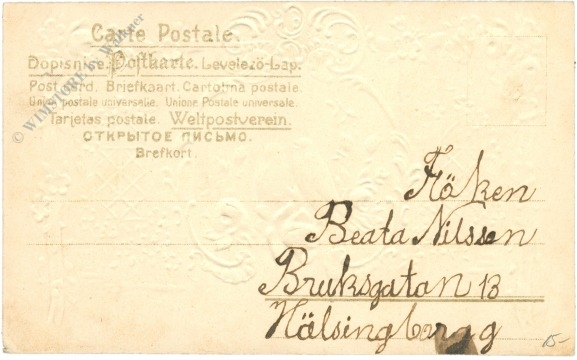 Carte Postale.
Dopisnice. Postkarte. Levelező-Lap.
Post card. Briefkaart. Cartolina postale.
Union postale universelle. Unione Postale universale.
Tarjetas postale. Weltpostverein.
ОТКРЫТОЕ ПИСЬМО.
Brefkort.
© WIMSTORE by
Flöken
Beata Nilsson
Bruksgatan 13
Hälsingborg
15-